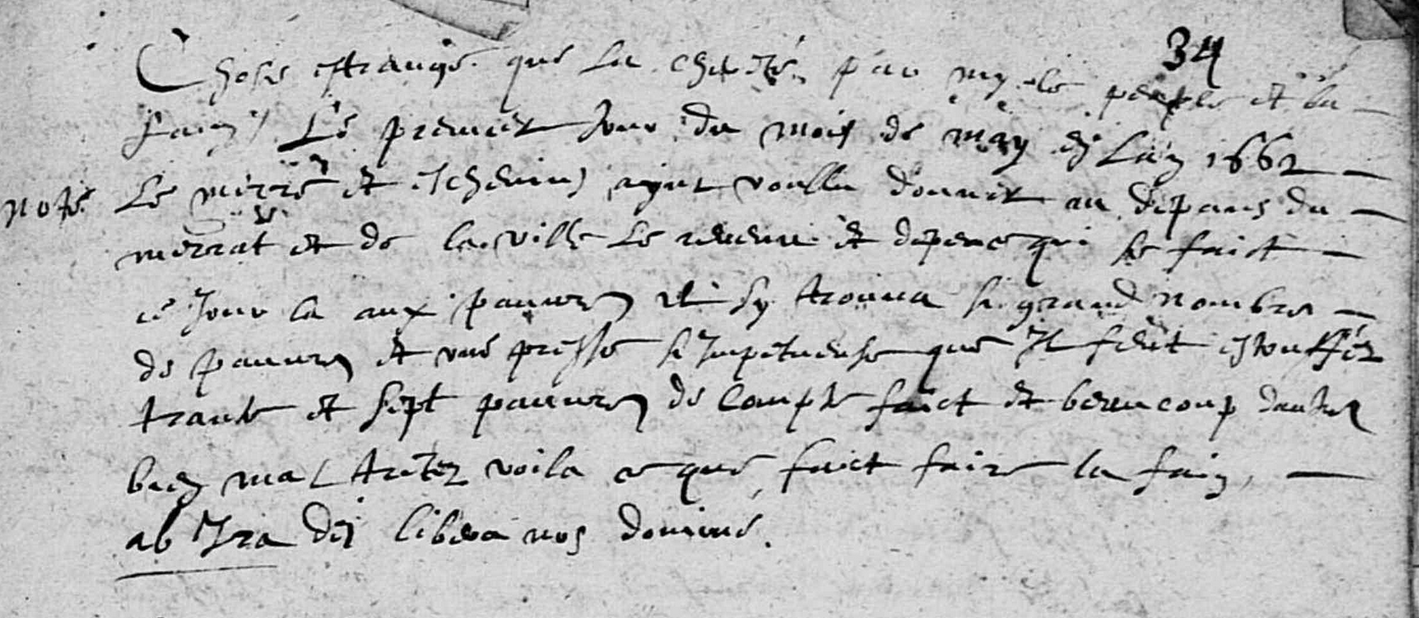 34
Chose estrange que la cherté parmy le peuple et la
faim Le premier Jour du mois de may en Lan 1662
Note Le merre et eschevins ayant voullu donner au depans du
merrat et de la ville le revenu et depence qui se faict
ce Jour la aux pauvres il sy trouva si grand nombre
de pauvres et une presse si Impetueuse que Il feut estouffer
trante et sept pauvres de compte faict et beaucoup dautres
bien mal tretez voila ce que faict faire la faim
ab Ira dei libera nos domine.